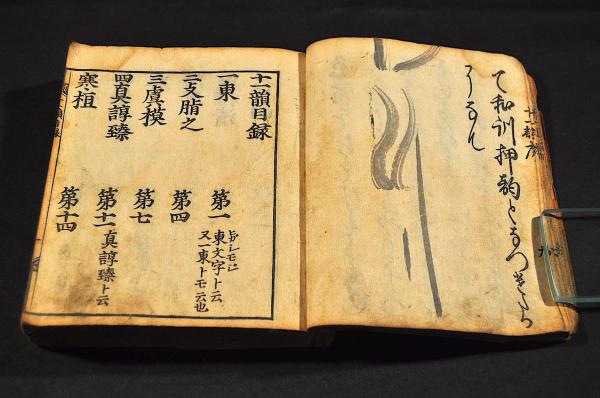 て和訓押韵となつきたう
十一韻序
十一韻目録
一東 第一 東文字ト云
又一東トモ云也
二支脂之 第四
三虞模 第七
四真諄臻 第十一 真諄臻ト云
寒桓 第十四